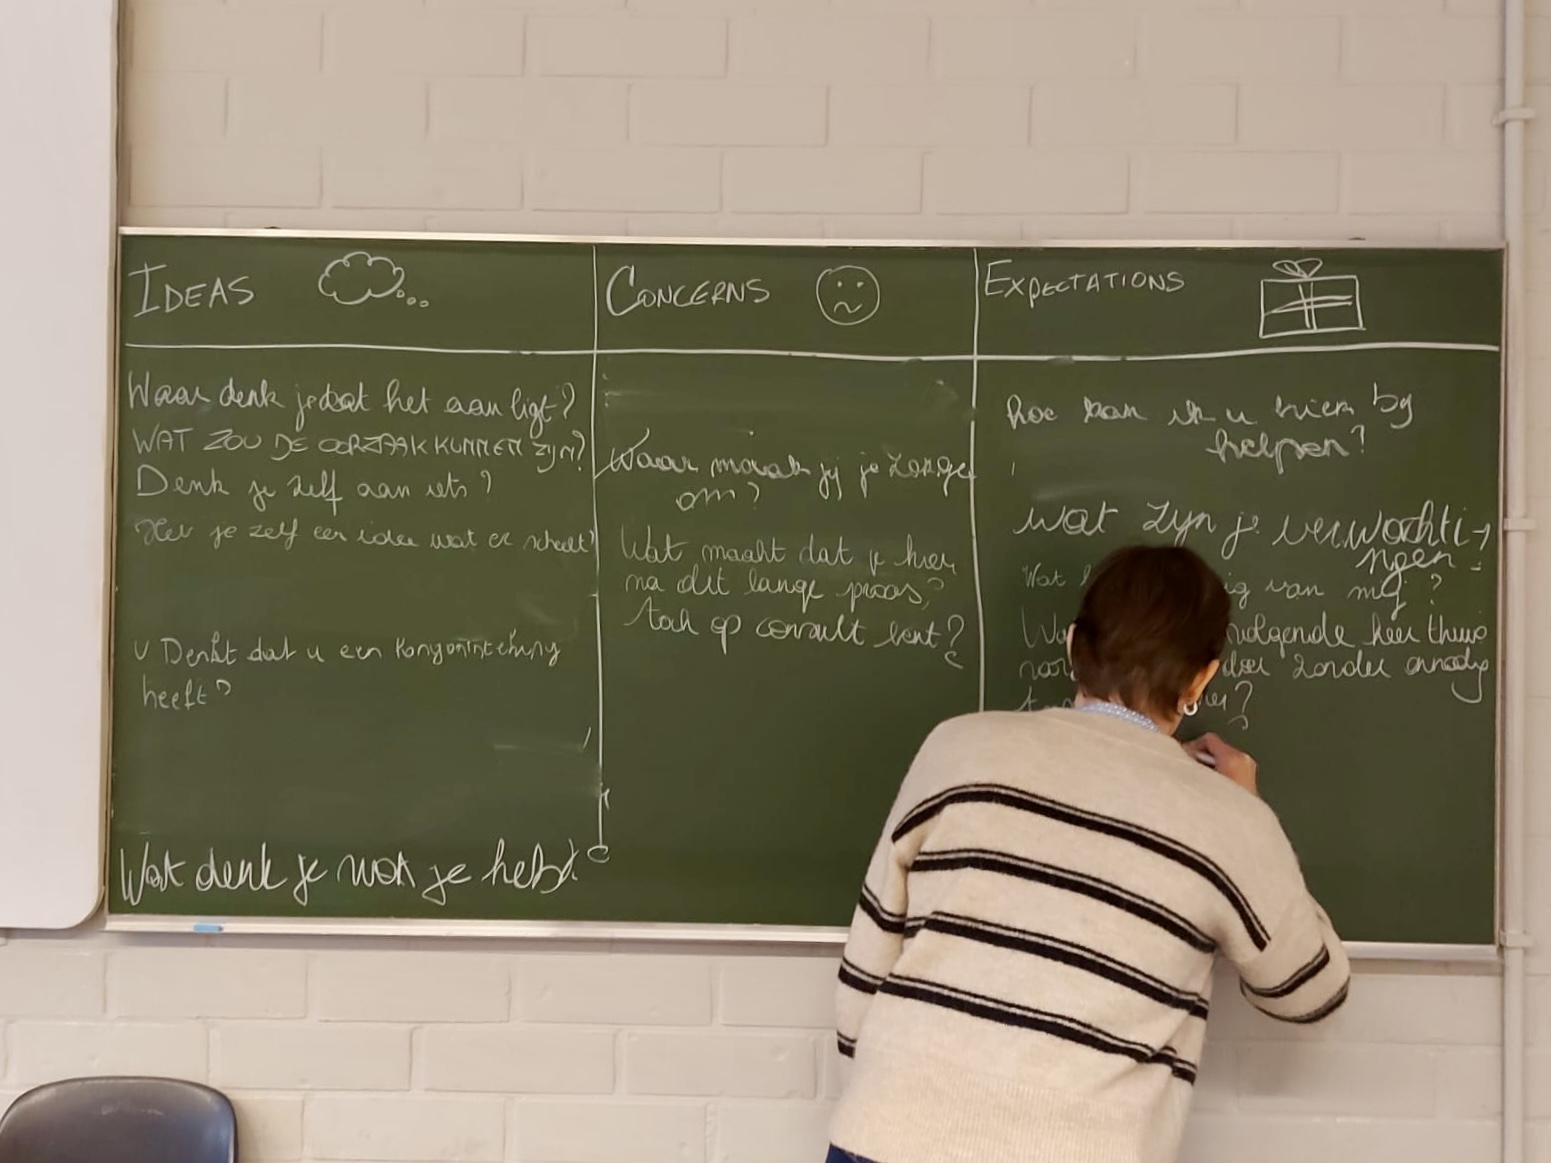 IDEAS
Waar denk je dat het aan ligt?
WAT ZOU DE OORZAAK KUNNEN ZIJN?
Denk je zelf aan iets?
Heb je zelf een idee wat er scheelt?
U Denkt dat u een
heeft?
Wat denk je wat je hebt?
CONCERNS
Waar maak jij je zorgen
om?
Wat maakt dat je hier
na dit lange proces,
toch op consult bent?
EXPECTATIONS
hoe kan ik u hier bij
helpen?
wat zijn je verwachti→
ngen?
Wat van mij?
volgende keer thuis
zonder onnodig